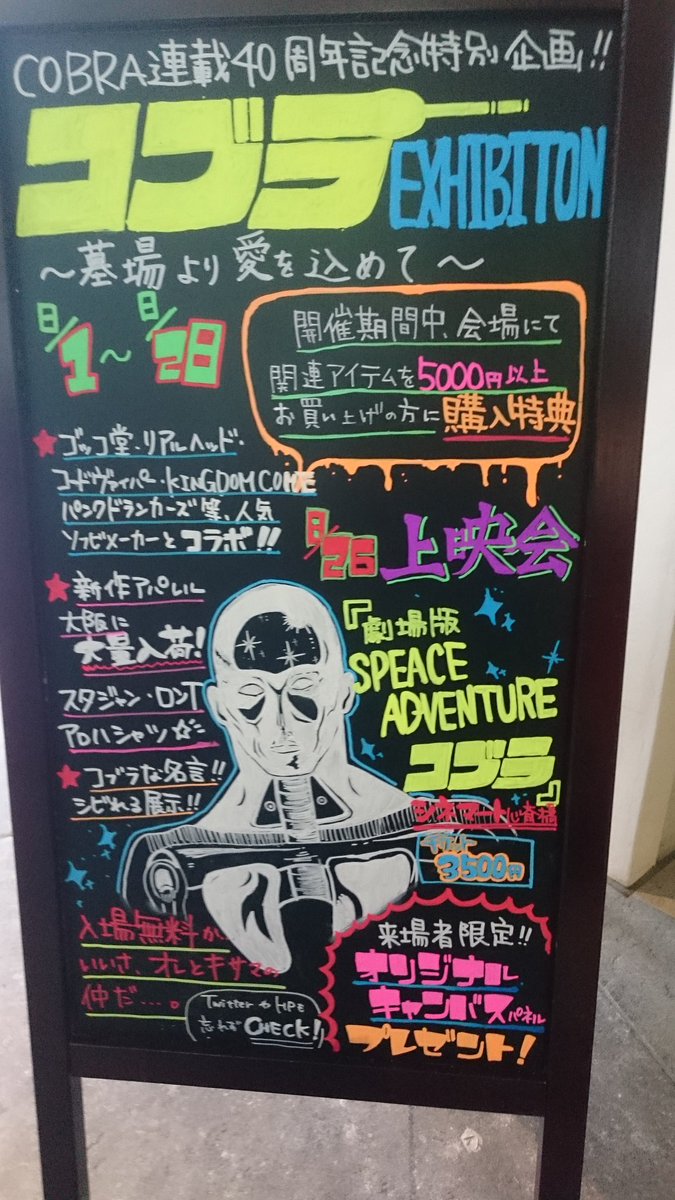 COBRA連載40周年記念特別企画!!
コブラ
EXHIBITON
～墓場より愛を込めて～
8/1～8/28
開催期間中、会場にて
関連アイテムを5000円以上
お買い上げの方に購入特典
★ゴッコ堂・リアルヘッド・
コードヴァイパー・KINGDOM COME
パンクドランカーズ等、人気
ソフビメーカーとコラボ!!
8/26上映会
★新作アパレル
大阪に
大量入荷!
スタジャン・ロンT
アロハシャツ☆
★コブラな名言!!
シビれる展示!!
『劇場版
SPEACE
ADVENTURE
コブラ』
シネマート心斎橋
チケット
3500円
入場無料か
いいさ、オレとキサマの
仲だ…。
TwitterやHPを
忘れずCHECK!
来場者限定!!
オリジナル
キャンバスパネル
プレゼント!